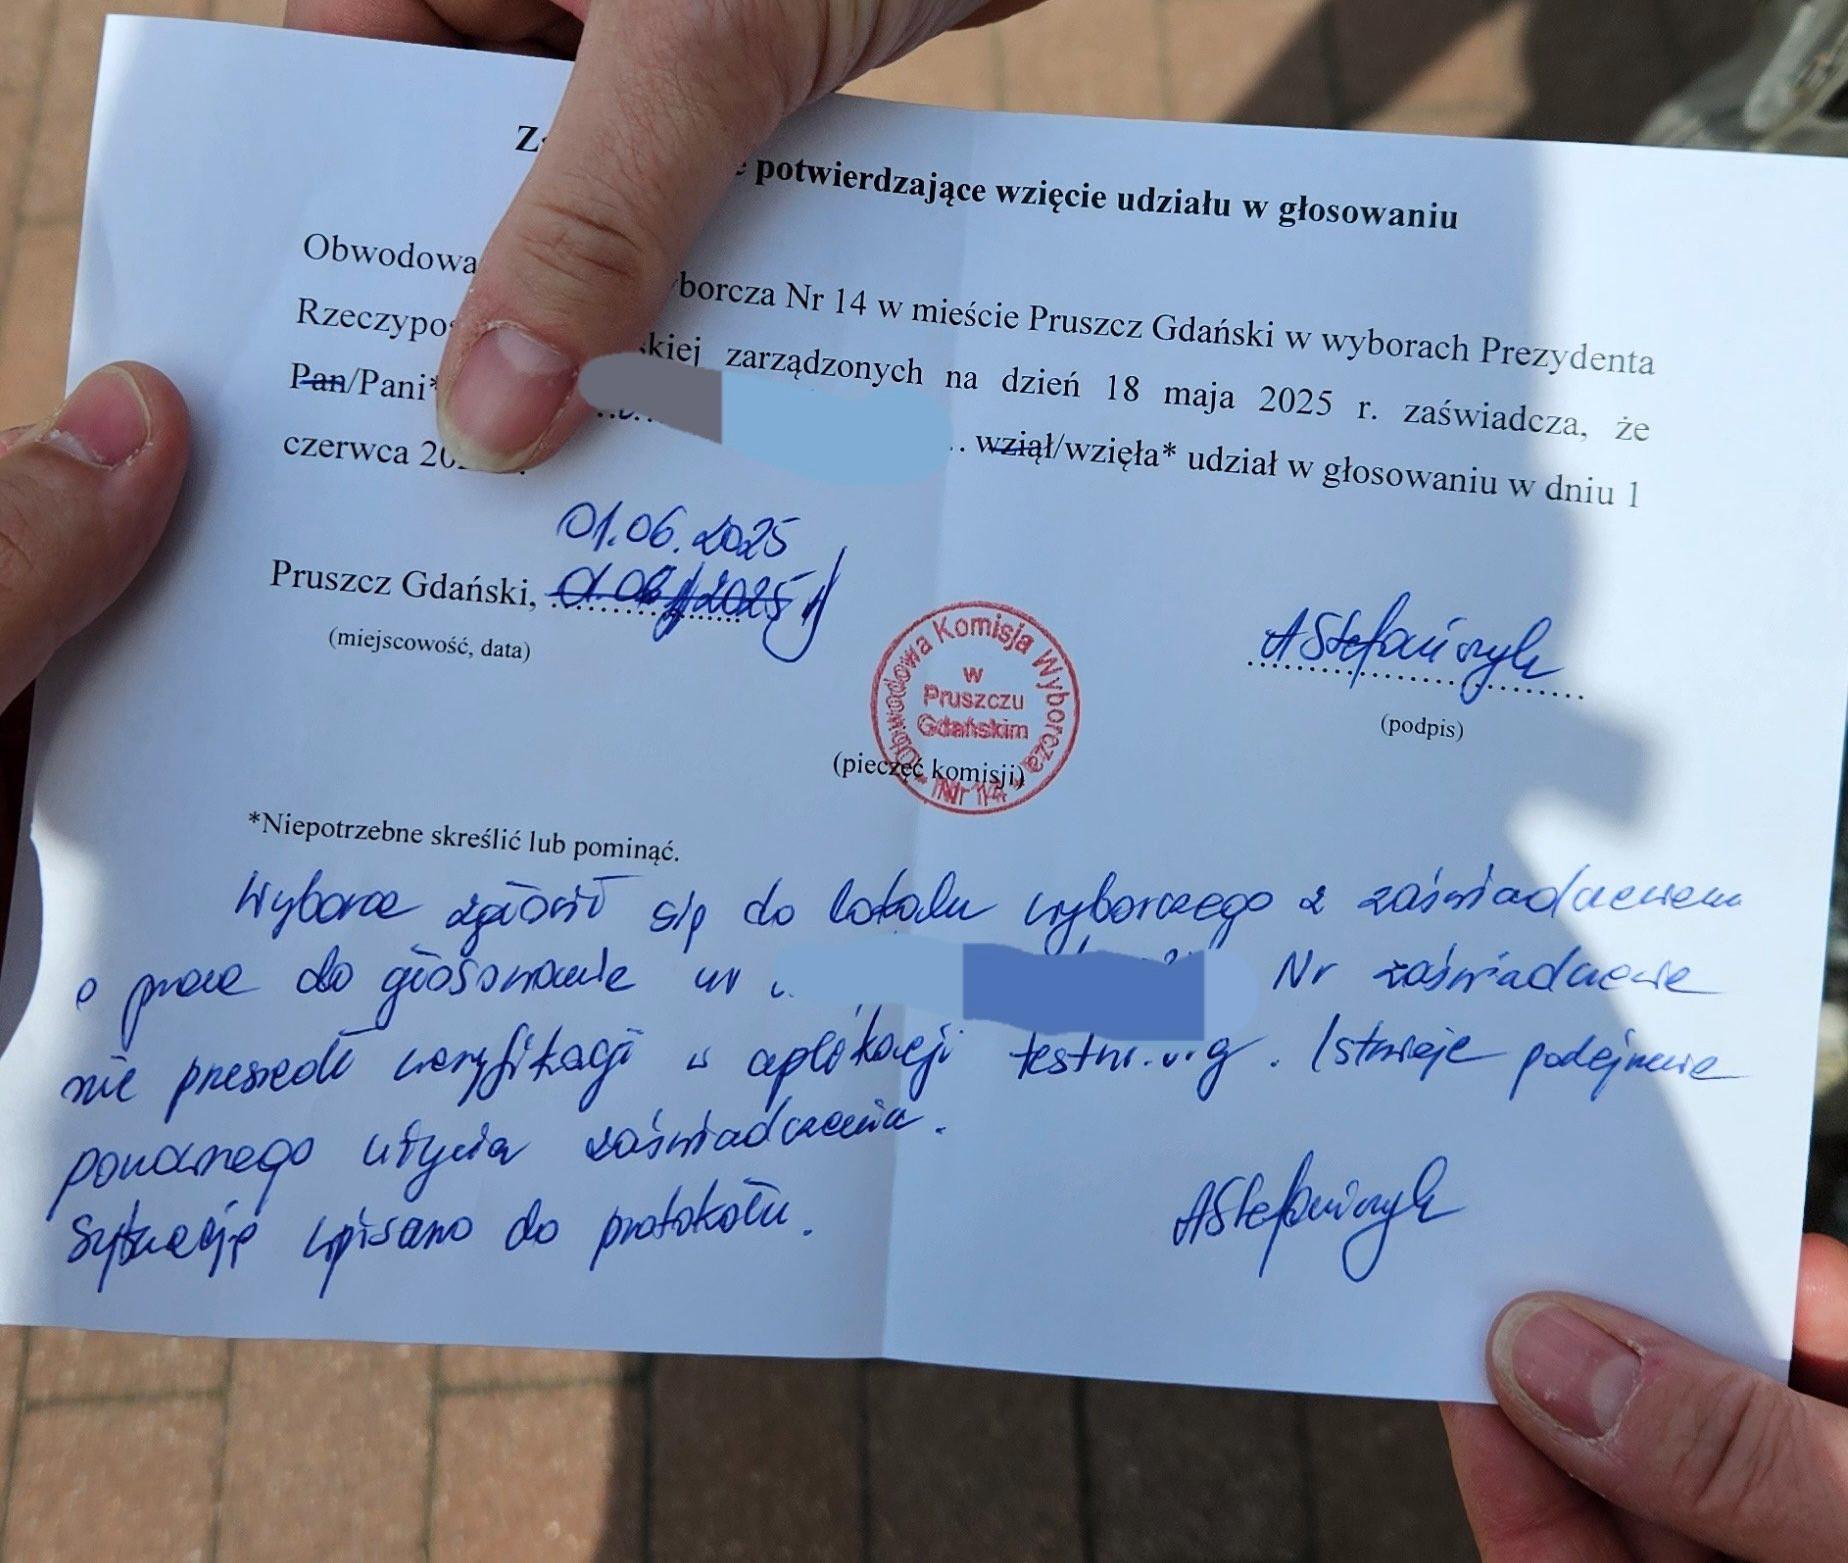 potwierdzające wzięcie udziału w głosowaniu
Obwodowa borcza Nr 14 w mieście Pruszcz Gdański w wyborach Prezydenta
Rzeczypo skiej zarządzonych na dzień 18 maja 2025 r. zaświadcza, że
Pan/Pani* wziął/wzięła* udział w głosowaniu w dniu 1
czerwca
01.06.2025
Pruszcz Gdański,
(miejscowość, data)
AStefańczyk
(podpis)
Obwodowa Komisja Wyborcza
w
Pruszczu
Gdańskim
Nr 14
(pieczęć komisji)
*Niepotrzebne skreślić lub pominąć.
Wyborca zgłosił się do lokalu wyborczego z zaświadczeniem
o prawie do głosowania nr Nr zaświadczenia
nie przeszedł weryfikacji w aplikacji Istnieje podejrzenie
ponownego użycia zaświadczenia.
Sytuację wpisano do protokołu.
AStefańczyk